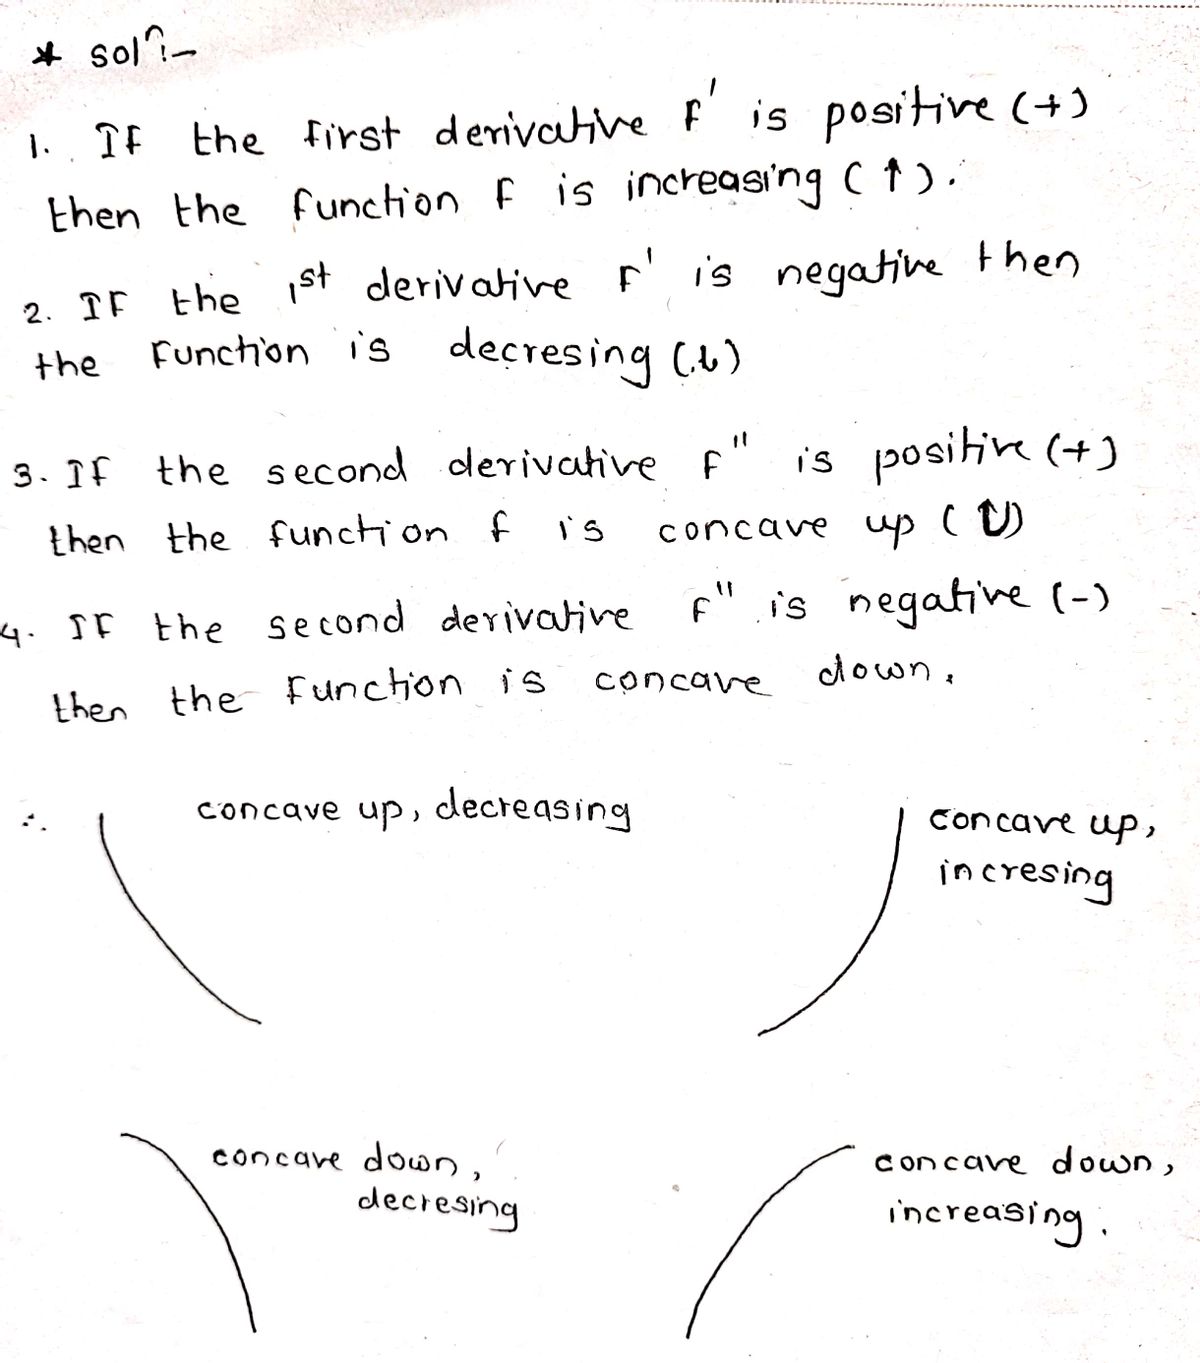 * solⁿ:-
1. If the first derivative f' is positive (+)
then the function f is increasing (↑).
2. If the 1st derivative f' is negative then
the function is decresing (↓)
3. If the second derivative f" is positive (+)
then the function f is concave up (U)
4. If the second derivative f" is negative (-)
then the function is concave down.
∴ concave up, decreasing
concave up,
incresing
concave down,
decresing
concave down,
increasing.